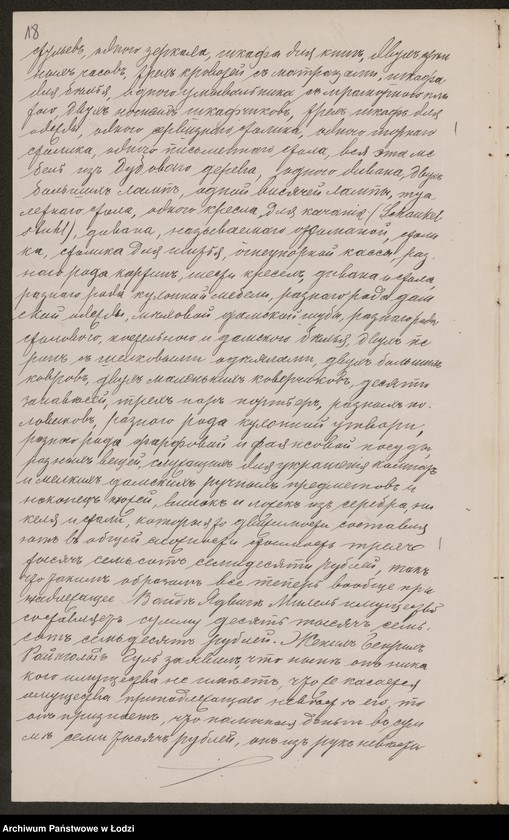 18
стульевъ, одного зеркала, шкафа для книгъ, двухъ
ныхъ часовъ, трехъ кроватей съ матрацами, шкафа
для бѣлья, одного умывальника съ мраморною пли
тою, двухъ ночныхъ шкафчиковъ, трехъ шкафовъ для
одежды, одного столика, одного
столика, одного письменнаго стола, вся эта ме
бель изъ дубоваго дерева, одного дивана, двухъ
большихъ лампъ, одной висячей лампы, туа
летнаго стола, одного кресла для качанія (Schaukel
stuhl), дивана, называемаго оттоманой, столи
ка, столика для шитья, огнеупорной кассы, раз-
наго рода картинъ, шести креселъ, дивана и стола,
разнаго рода кухонной мебели, разнаго рода дам
ской одежды, дамской шубы, разнаго рода
столоваго, постельнаго и дамскаго бѣлья, двухъ пе
ринъ съ шелковыми одѣялами, двухъ большихъ
ковровъ, двухъ маленькихъ ковриковъ, десяти
занавѣсей, трехъ паръ портьеръ, разныхъ по-
ловиковъ, разнаго рода кухонной утвари,
разнаго рода фарфоровой и фаянсовой посуды,
разныхъ вещей, служащихъ для украшенія комнатъ
и мелкихъ дамскихъ ручныхъ предметовъ и
наконецъ ножей, вилокъ и ложекъ изъ серебра, ни
келя и стали, которыя то движимости составля
ютъ въ общей сложности стоимость трехъ
тысячъ семьсотъ семидесяти рублей, такъ
что такимъ образомъ все теперь вообще при
надлежащее Вандѣ Ядвигѣ имущество
составляетъ сумму десять тысячъ семь-
сотъ семьдесятъ рублей. Женихъ Генрихъ
Райнгольдъ заявилъ, что нынѣ онъ ника
кого имущества не имѣетъ, что же касается
имущества принадлежащаго невѣстѣ его, то
онъ признаетъ, что наличныя деньги въ сум
мѣ семи тысячъ рублей, онъ изъ рукъ невѣсты
Archiwum Państwowe w Łodzi